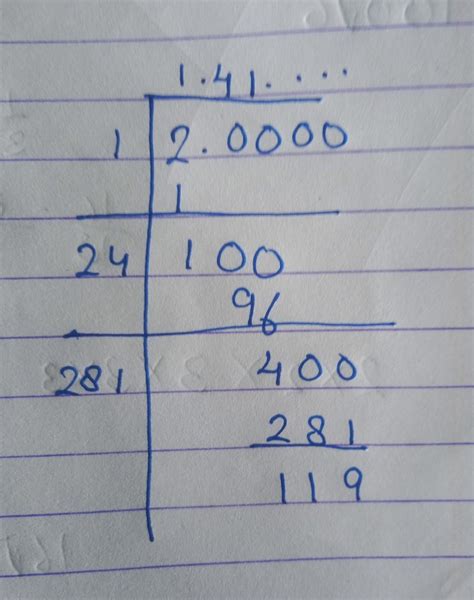 1.41.....
1 2.0000
1
24 100
96
281 400
281
119